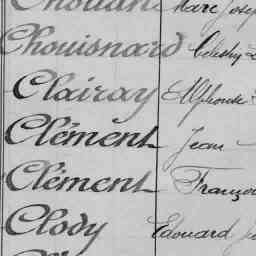 Marc Josep
Chouisnard
Clairay Alphonse
Clément Jean
Clément Franço
Clody Edouard